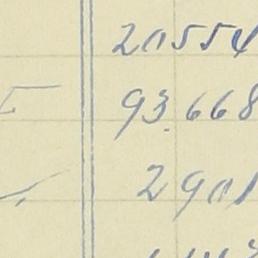 20554
93.668
2901